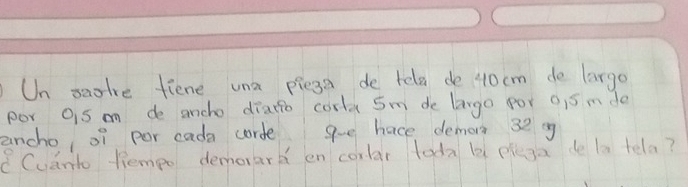 ) Un sastre tiene una pieza de tela de 40cm de largo
por 0,5 m de ancho diario corta 5m de largo por 0,5 m de
ancho, si por cada corde que hace demora 32 g
¿Cuánto tiempo demorará en cortar toda la pieza de la tela?